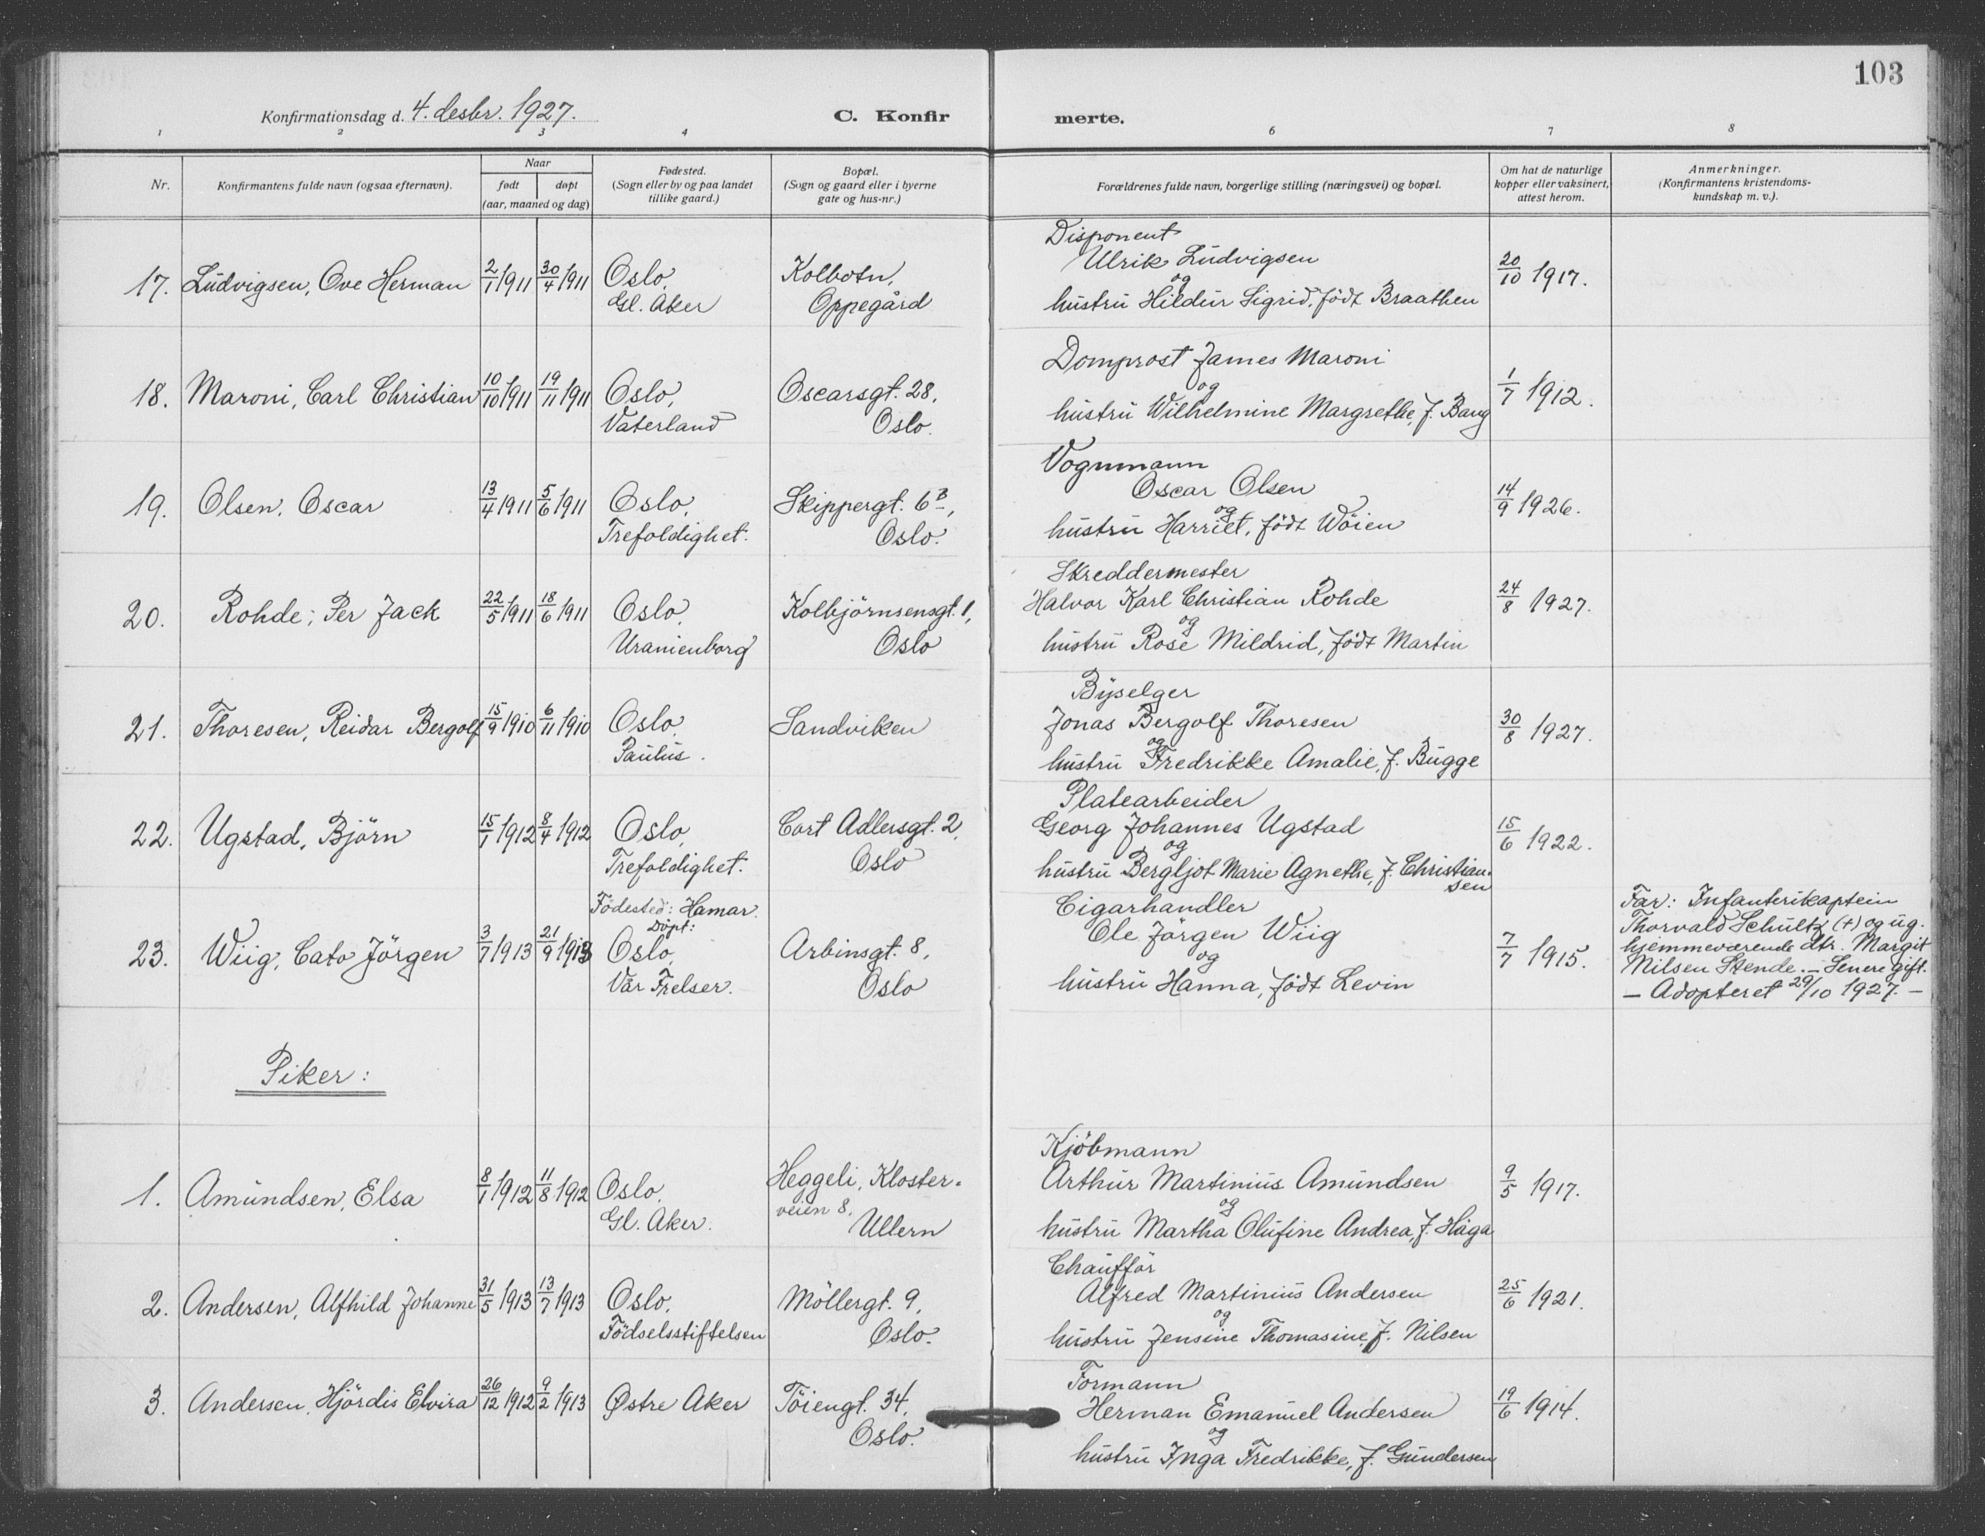 103
Konfirmationsdag d. 4. desbr. 1927.
C. Konfirmerte.
1 2 3 4 6 7 8
Nr.
Konfirmantens fulde navn (ogsaa efternavn).
Naar
født døpt
(aar, maaned og dag)
Fødested.
(Sogn eller by og paa landet
tillike gaard.)
Bopæl.
(Sogn og gaard eller i byerne
gate og hus-nr.)
Forældrenes fulde navn, borgerlige stilling (næringsvei) og bopæl.
Om hat de naturlige
kopper eller vaksinert,
attest herom.
Anmerkninger.
(Konfirmantens kristendoms-
kundskap m. v.).
17. Ludvigsen, Ove Herman 2/1 1911 30/4 1911
Oslo,
Gl. Aker
Kolbotn,
Oppegård
Disponent
Ulrik Ludvigsen
og
hustru Hildur Sigrid, født Braathen
20/10 1917.
18. Maroni, Carl Christian 10/10 1911 19/11 1911
Oslo,
Vaterland
Oscarsgt. 28,
Oslo.
Domprost James Maroni
og
hustru Wilhelmine Margrethe, f. Bang
1/7 1912.
19. Olsen, Oscar 13/4 1911 5/6 1911
Oslo,
Trefoldighet.
Skippergt. 6B,
Oslo.
Vognmann
Oscar Olsen
og
hustru Harriet, født Wöien
14/9 1926.
20. Rohde, Per Jack 22/5 1911 18/6 1911
Oslo,
Uranienborg
Kolbjörnsensgt. 1,
Oslo
Skreddermester
Halvor Karl Christian Rohde
og
hustru Rose Mildrid, født Martin
24/8 1927.
21. Thoresen, Reidar Bergolf 15/9 1910 6/11 1910
Oslo,
Paulus.
Sandviken
Byselger
Jonas Bergolf Thoresen
og
hustru Fredrikke Amalie, f. Bugge
30/8 1927.
22. Ugstad, Björn 15/1 1912 8/4 1912
Oslo,
Trefoldighet.
Cort Adlersgt. 2,
Oslo
Platearbeider
Georg Johannes Ugstad
og
hustru Bergljot Marie Agnethe, f. Christian-
sen
15/6 1922.
23. Wiig, Cato Jörgen 3/7 1913 21/9 1913
Födested: Hamar.
Döpt:
Oslo,
Vår Frelser.
Arbinsgt. 8,
Oslo
Cigarhandler
Ole Jörgen Wiig
og
hustru Hanna, født Levin
7/7 1915.
Far: Infanterikaptein
Thorvald Schultz (+) og ug.
hjemmeværende dtr. Margit
Nilsen Stende. – Senere gift.
– Adopteret 29/10 1927. –
Piker:
1. Amundsen, Elsa 8/1 1912 11/8 1912
Oslo,
Gl. Aker.
Heggeli, Kloster-
veien 8,
Ullern
Kjöbmann
Arthur Martinius Amundsen
og
hustru Martha Olufine Andrea, f. Haga
9/5 1917.
2. Andersen, Alfhild Johanne 31/5 1913 13/7 1913
Oslo,
Födselsstiftelsen
Möllergt. 9,
Oslo.
Chaufför
Alfred Martinius Andersen
og
hustru Jensine Thomasine, f. Nilsen
25/6 1921.
3. Andersen, Hjördis Elvira 26/12 1912 9/2 1913
Østre Aker
Töiengt. 34,
Oslo.
Formann
Herman Emanuel Andersen
og
hustru Inga Fredrikke, f. Gundersen
19/6 1914.